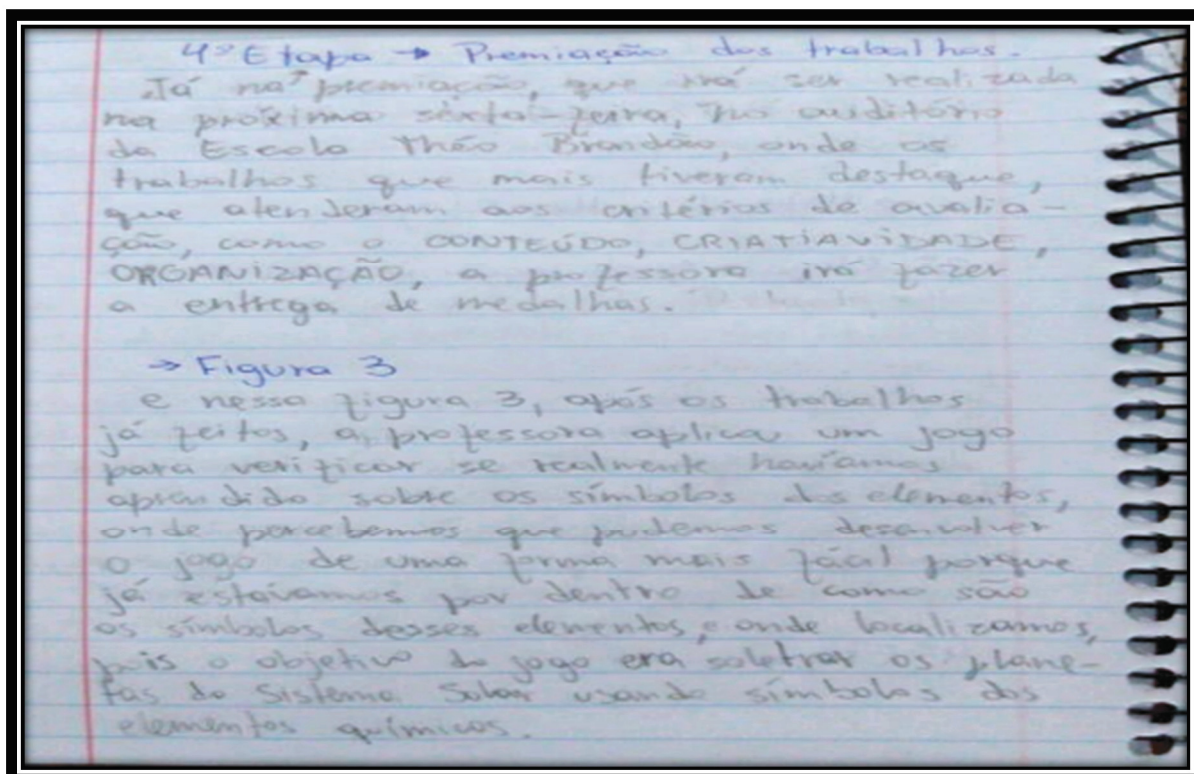 4ª Etapa → Premiação dos trabalhos.
Já na premiação, que irá ser realizada
na próxima sexta-feira, no auditório
da Escola Théo Brandão, onde os
trabalhos que mais tiveram destaque,
que atenderam aos critérios de avalia-
ção, como o CONTEÚDO, CRIATIAVIDADE,
ORGANIZAÇÃO, a professora irá fazer
a entrega de medalhas.
→ Figura 3
e nessa figura 3, após os trabalhos
já feitos, a professora aplica um jogo
para verificar se realmente havíamos
aprendido sobre os símbolos dos elementos,
onde percebemos que pudemos desenvolver
o jogo de uma forma mais fácil porque
já estávamos por dentro de como são
os símbolos desses elementos, e onde localizamos,
pois o objetivo do jogo era soletrar os plane-
tas do Sistema Solar usando símbolos dos
elementos químicos.